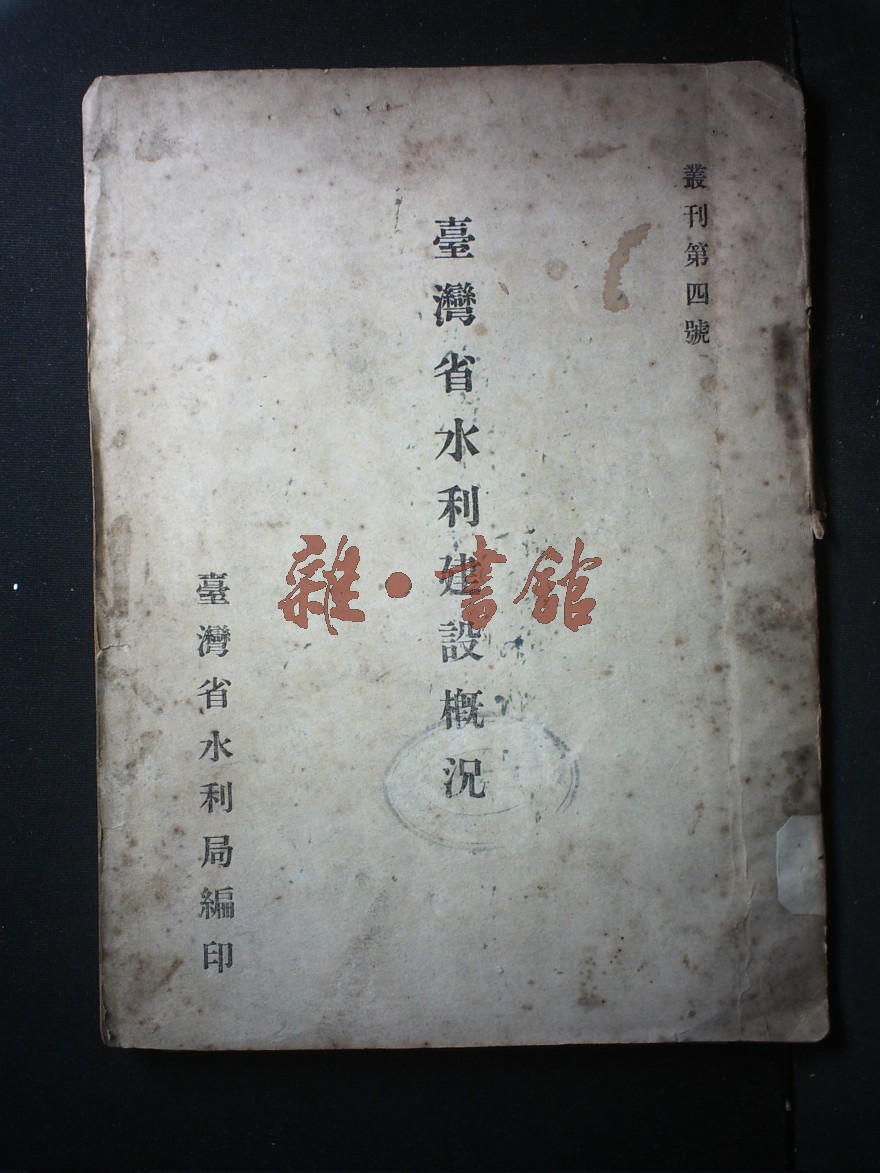 叢刊第四號
臺灣省水利建設概況
臺灣省水利局編印
雜·書館